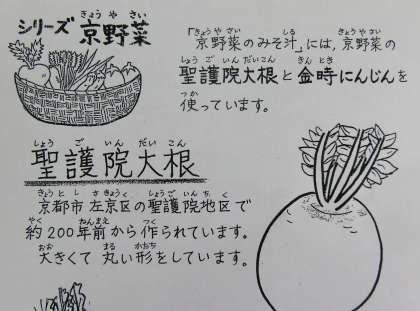 シリーズ 京野菜
「京野菜のみそ汁」には,京野菜の
聖護院大根と金時にんじんを
使っています。
聖護院大根
京都市左京区の聖護院地区で
約200年前から作られています。
大きくて丸い形をしています。